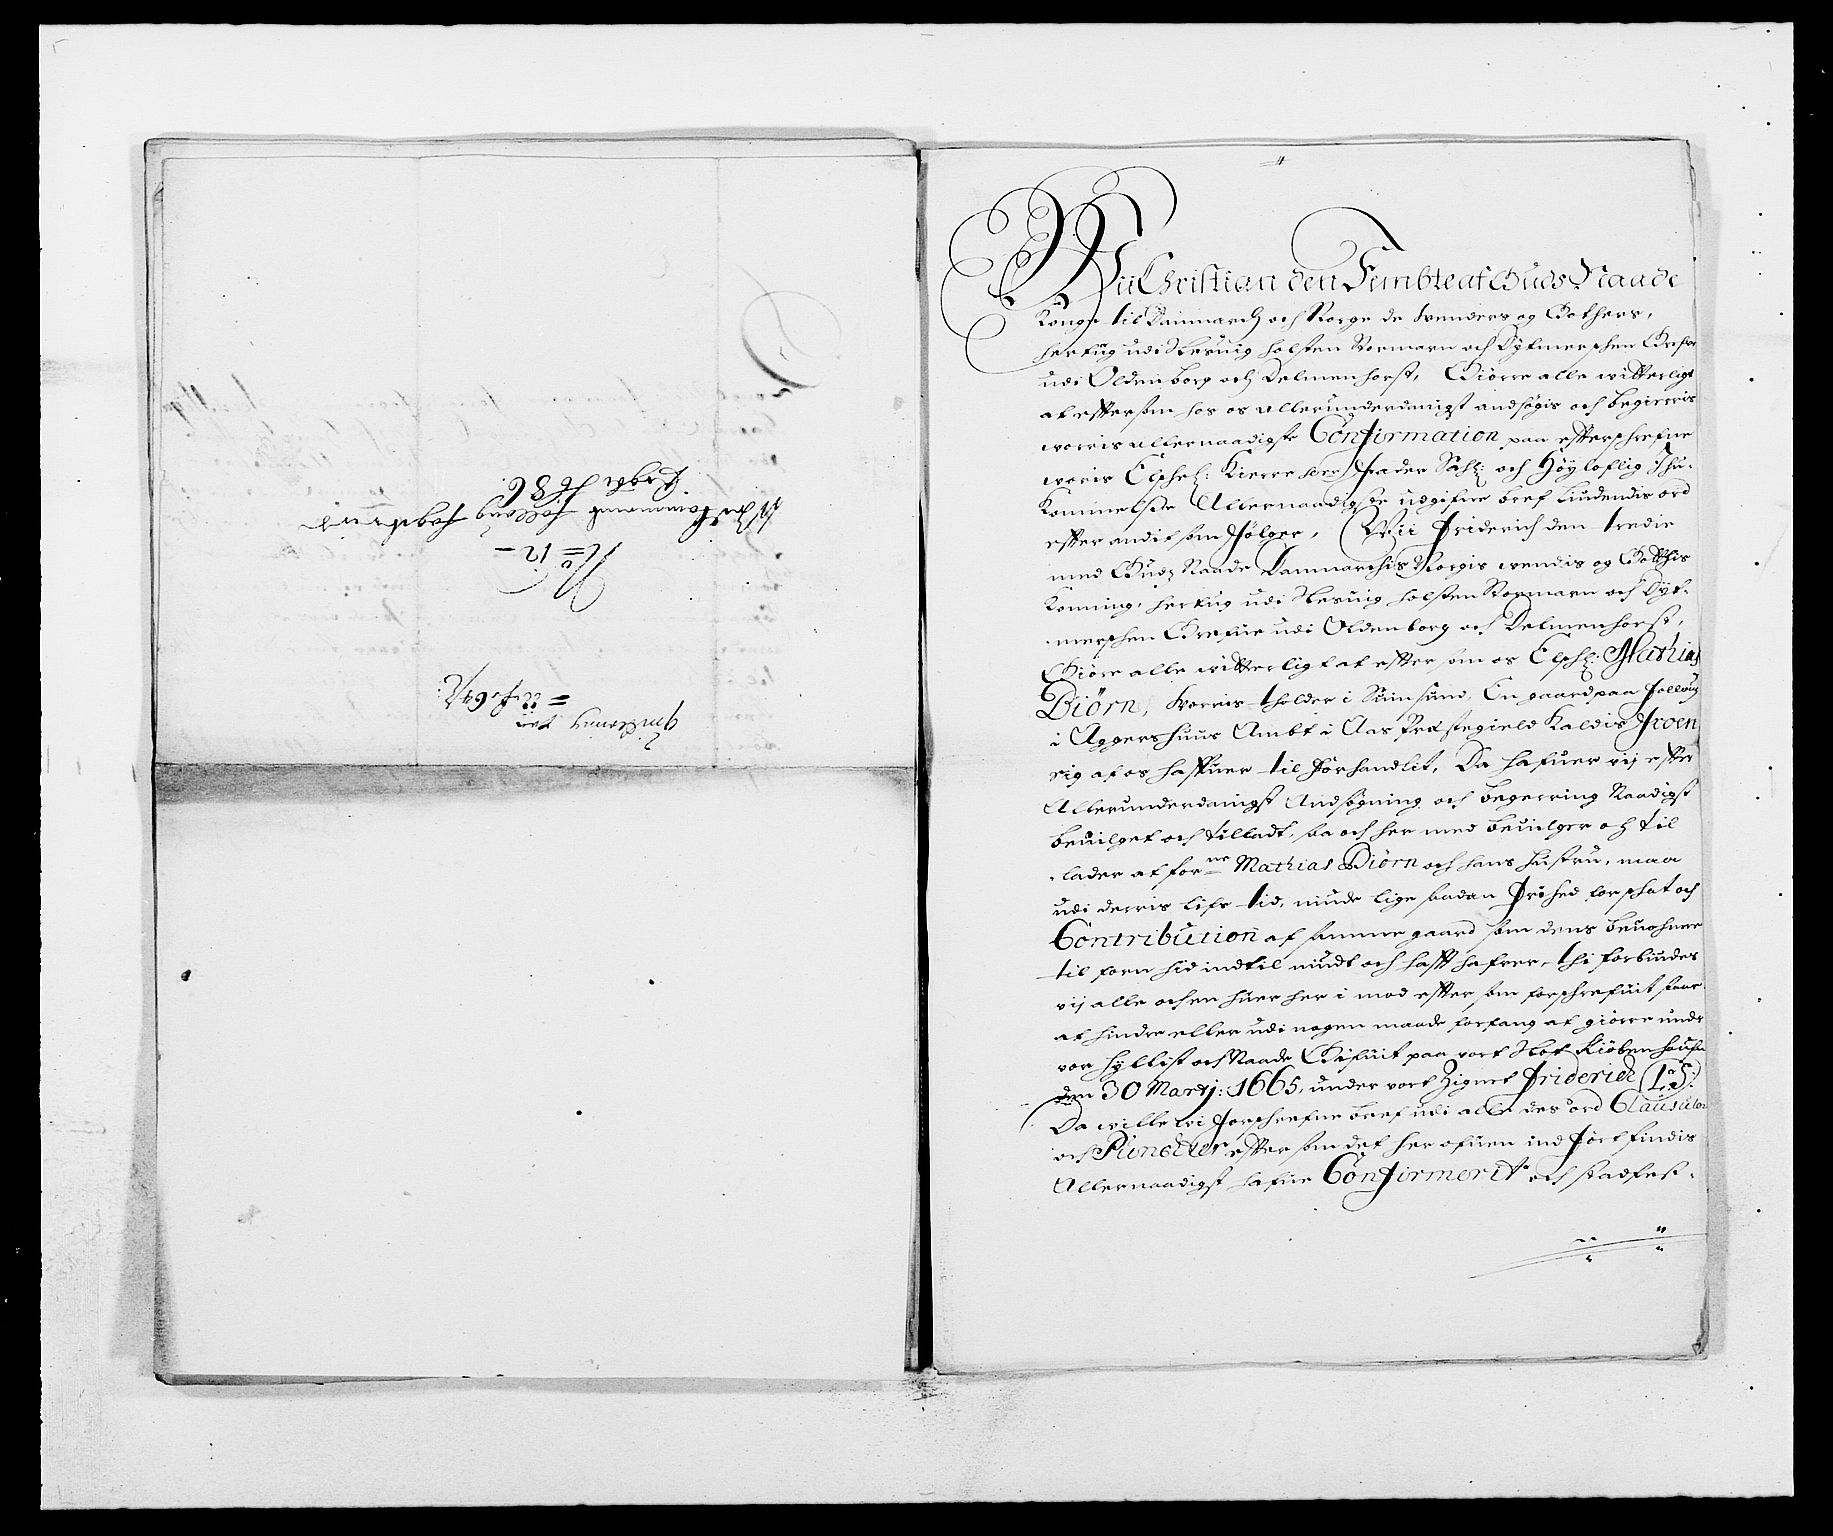 No 12 -
fogderie
1686
Wii Christian den Fembte af Guds Naade
Konge til Danmarch och Norge de Wenders og Gothers,
hertug udi Slesuig holsten Stormarn och Dytmerschen Grefue
udi Oldenborg och Delmenhorst, Giörre alle witterligt
at effter som hos os allerunderdanigst andsøgis och begierris
worris allernaadigste Confirmation paa effterschrefne
woris Elschel: Kierre herr Fader Sahl: och Höyloflig Ihu-
kommelse Allernaadigste udgifne bref liudendis ord
effter andit som fölger, Wii Friderich den tredie
med Gudz Naade Danmarchis Norgis wendis og Gotthis
Konning, hertug udi Slesuig holsten Stormarn och Dyt-
merschen Grefue udi Oldenborg och Delmenhorst,
Giöre alle witterligt at effter som os Elschl: Mathias
Biörn, worris tholder i Suinsund, En gaard paa follaug
i Aggershuus Ambt i Aas Prestegield Kaldis Froen
sig af os haffuer til forhandlit, Da hafuer vij effter
Allerunderdanigst Andsøgning och begerring Naadigst
beuilget och tilladt, saa och her med beuilger och til
lader at forne Mathias Biörn och hans hustru, maa
udi derris lifs tid, niude lige saadan frihed for schat och
Contribution af samme gaard som dens beuohnere
til forn hid indtil niudt och hafft hafuer, thi forbiudes
vij alle och en huer her i mod effter som forschrefuit staar
at hindre eller udi nogen maade forfang at giörre under
vor hyllist och Naade Gifuit paa vort Slot Kiöbenhaufn
den 30 Martj: 1665, under vort Zignet Friderich (L:S:
Da wille wi forschrefne bref udi alle des ord Clausuler
och Puncter effter som det her ofuen ind fört findis
Allernaadigst hafue Confirmerit och stadfest-